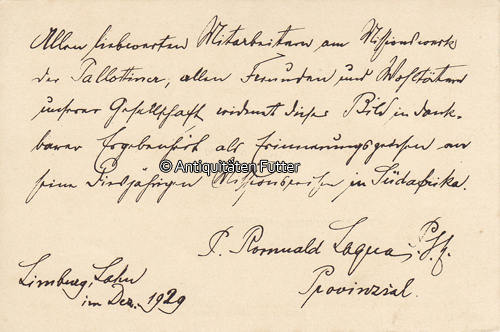 Allen liebwerten Mitarbeitern am Missionswerk
der Pallottiner, allen Freunden und Wohltätern
unserer Gesellschaft widmet dieses Bild in dank-
barer Ergebenheit als Erinnerungszeichen an
© Antiquitäten Futter
seine diesjährigen Missionsreisen in Südafrika.
P. Romuald Laqua P.S.M.
Provinzial.
Limburg, Lahn
im Dez. 1929